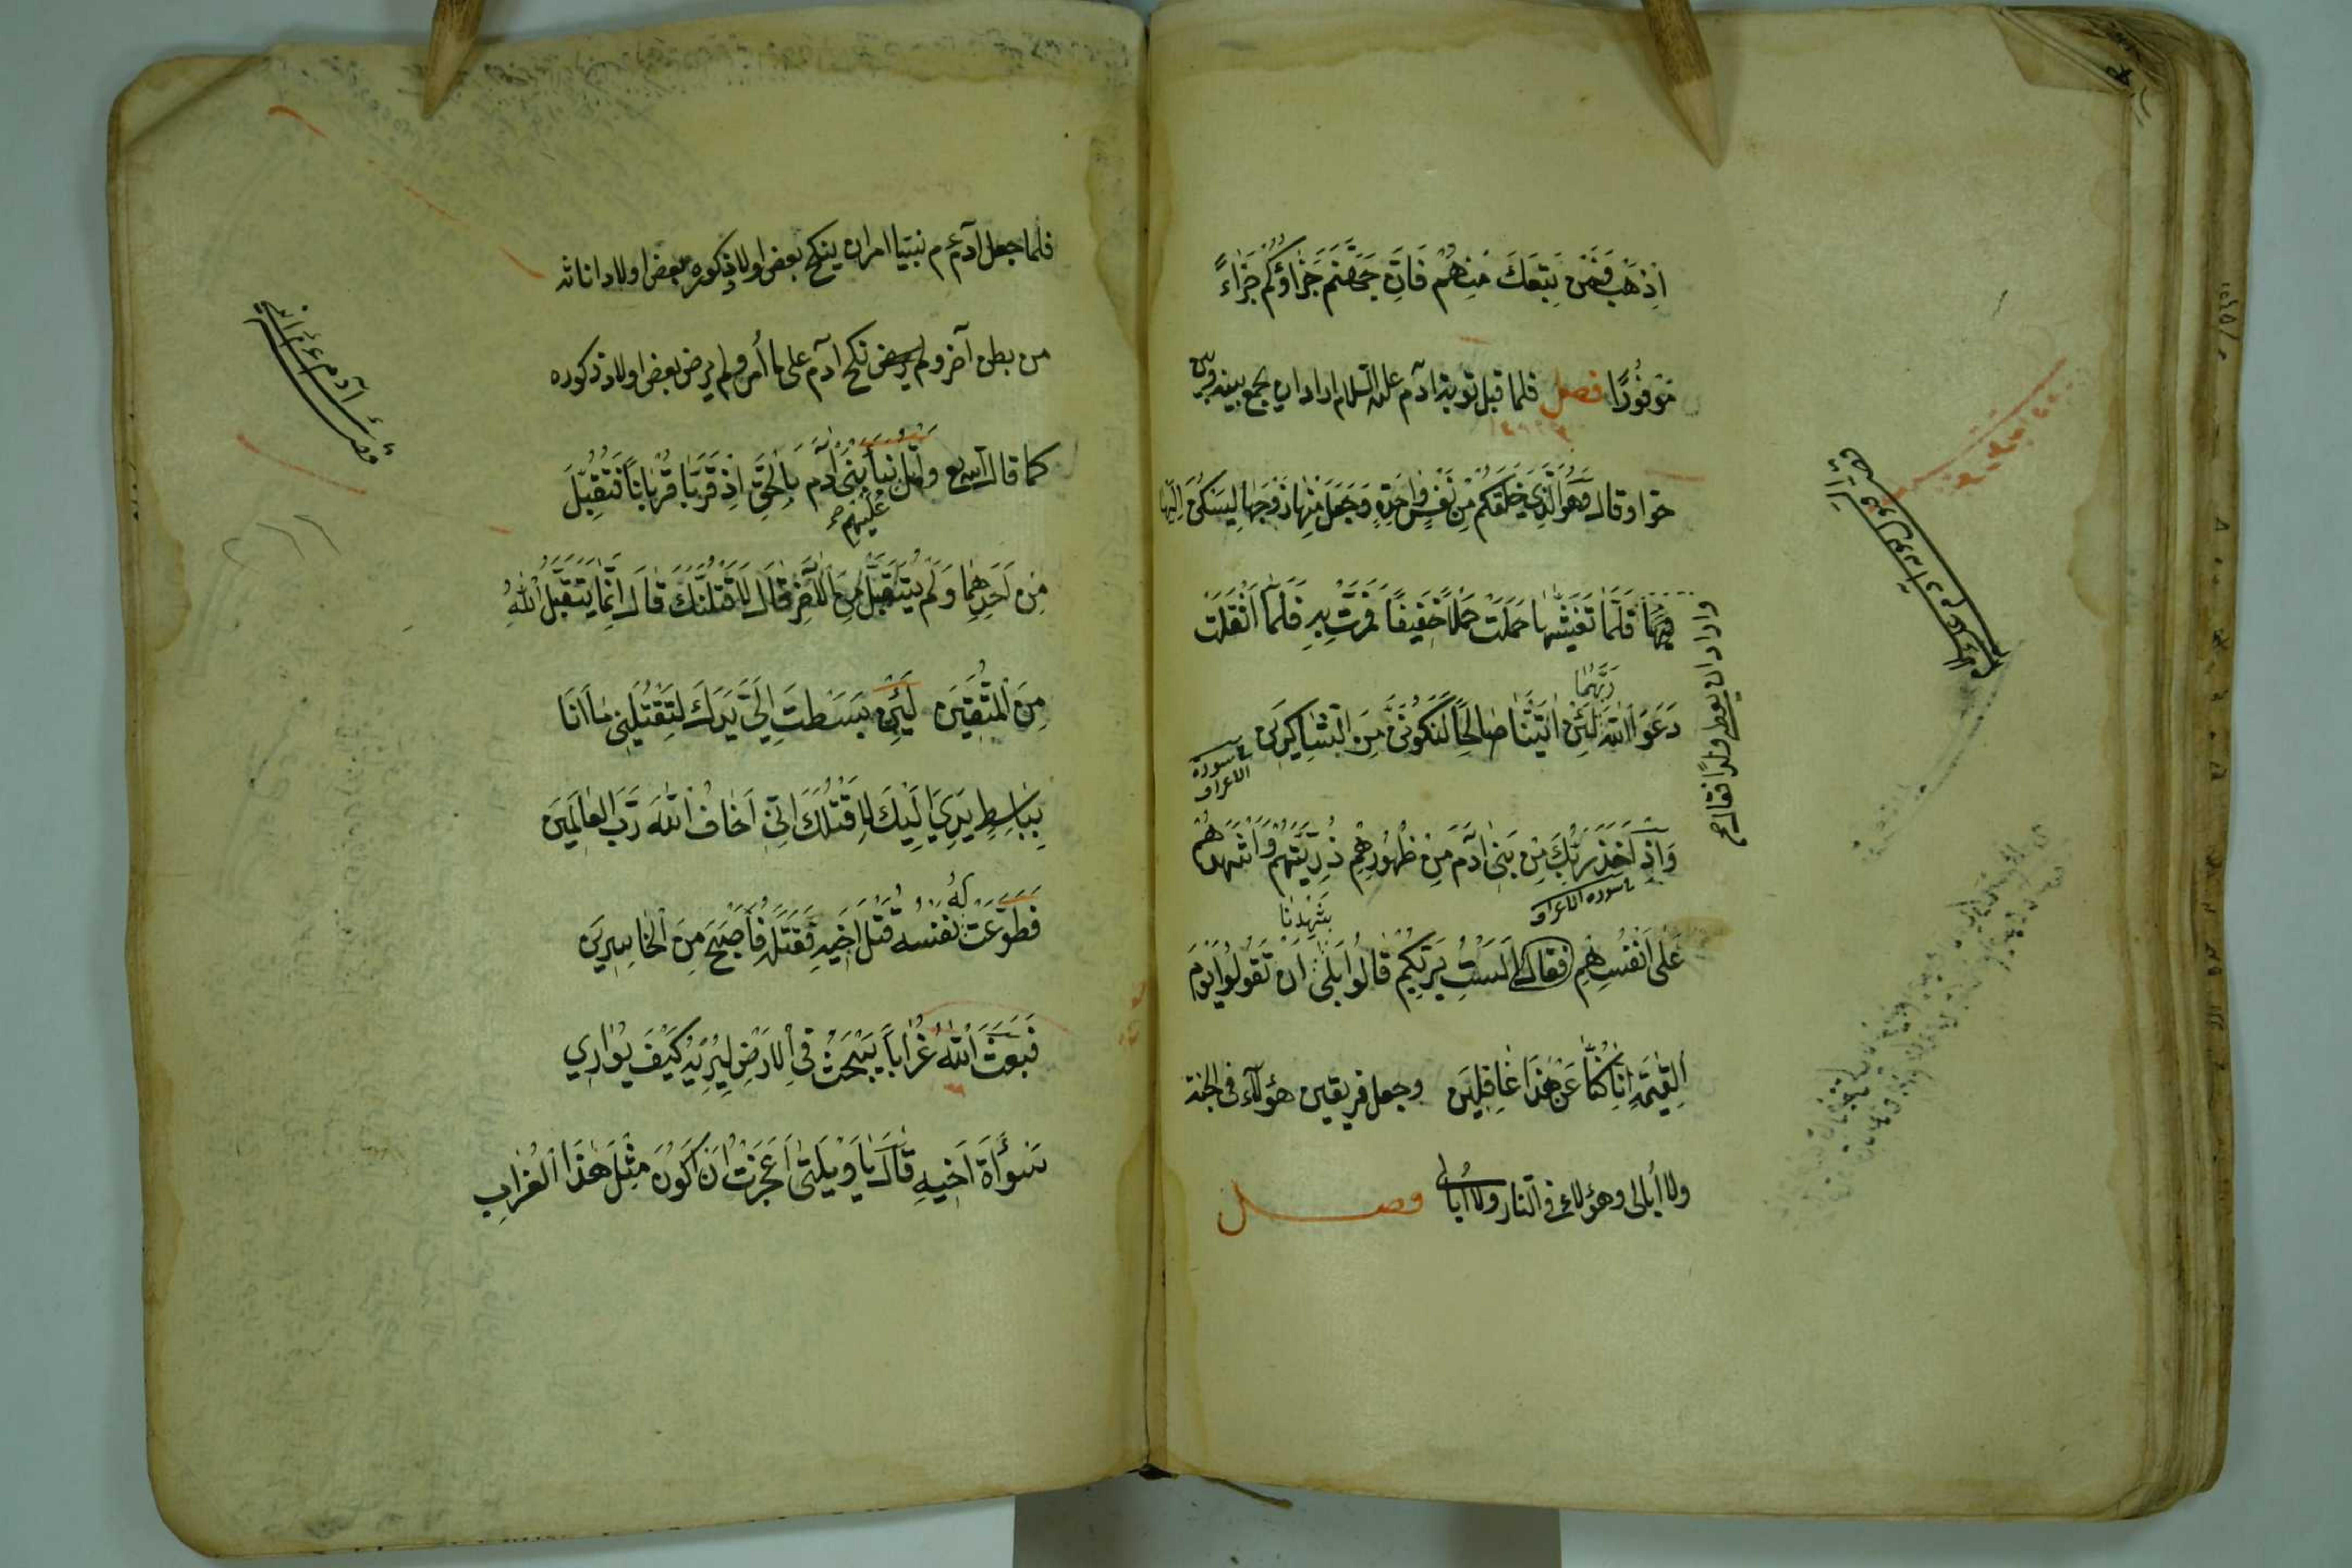 اِذْهَبْ فَمَنْ تَبِعَكَ مِنْهُمْ فَاِنَّ جَهَنَّمَ جَزَاؤُكُمْ جَزَاءً
مَوْفُورًا فصل فلما قبل توبة ادم عليه السلام اراد ان يجمع بينه وبين
حوا وقال وَهُوَ الَّذِي خَلَقَكُمْ مِنْ نَفْسٍ وَاحِدَةٍ وَجَعَلَ مِنْهَا زَوْجَهَا لِيَسْكُنَ اِلَيْهَا
فَلَمَّا تَغَشّٰيهَا حَمَلَتْ حَمْلًا خَفِيفًا فَمَرَّتْ بِهِ فَلَمَّا اَثْقَلَتْ
دَعَوَا اللّٰهَ رَبَّهُمَا لَئِنْ اٰتَيْتَنَا صَالِحًا لَنَكُونَنَّ مِنَ الشَّاكِرِينَ
سورة الاعراف
وَاِذْ اَخَذَ رَبُّكَ مِنْ بَنِي اٰدَمَ مِنْ ظُهُورِهِمْ ذُرِّيَّتَهُمْ وَاَشْهَدَهُمْ
سورة الاعراف
عَلٰى اَنْفُسِهِمْ فقال اَلَسْتُ بِرَبِّكُمْ قَالُوا بَلٰى شَهِدْنَا اَنْ تَقُولُوا يَوْمَ
الْقِيٰمَةِ اِنَّا كُنَّا عَنْ هٰذَا غَافِلِينَ وجعل فريقين هؤلاء في الجنة
ولا أبالي وهؤلاء في النار ولا أبالي فصل
واراد ان يعطي ولدا فقال
فلما جعل آدم عم نبيا امر ان ينكح بعض اولاد ذكوره بعض اولاد اناثه
من بطن آخر ولم يرض نكح ادم على ما أمر ولم يرض بعض اولاد ذكوره
كما قال الله تع وَاتْلُ عَلَيْهِمْ نَبَأَ ابْنَيْ اٰدَمَ بِالْحَقِّ اِذْ قَرَّبَا قُرْبَانًا فَتُقُبِّلَ
مِنْ اَحَدِهِمَا وَلَمْ يُتَقَبَّلْ مِنَ الْاٰخَرِ قَالَ لَاَقْتُلَنَّكَ قَالَ اِنَّمَا يَتَقَبَّلُ اللّٰهُ
مِنَ الْمُتَّقِينَ لَئِنْ بَسَطْتَ اِلَيَّ يَدَكَ لِتَقْتُلَنِي مَا اَنَا
بِبَاسِطٍ يَدِيَ اِلَيْكَ لِاَقْتُلَكَ اِنِّي اَخَافُ اللّٰهَ رَبَّ الْعَالَمِينَ
فَطَوَّعَتْ لَهُ نَفْسُهُ قَتْلَ اَخِيهِ فَقَتَلَهُ فَاَصْبَحَ مِنَ الْخَاسِرِينَ
فَبَعَثَ اللّٰهُ غُرَابًا يَبْحَثُ فِي الْاَرْضِ لِيُرِيَهُ كَيْفَ يُوَارِي
سَوْأَةَ اَخِيهِ قَالَ يَا وَيْلَتٰى اَعَجَزْتُ اَنْ اَكُونَ مِثْلَ هٰذَا الْغُرَابِ